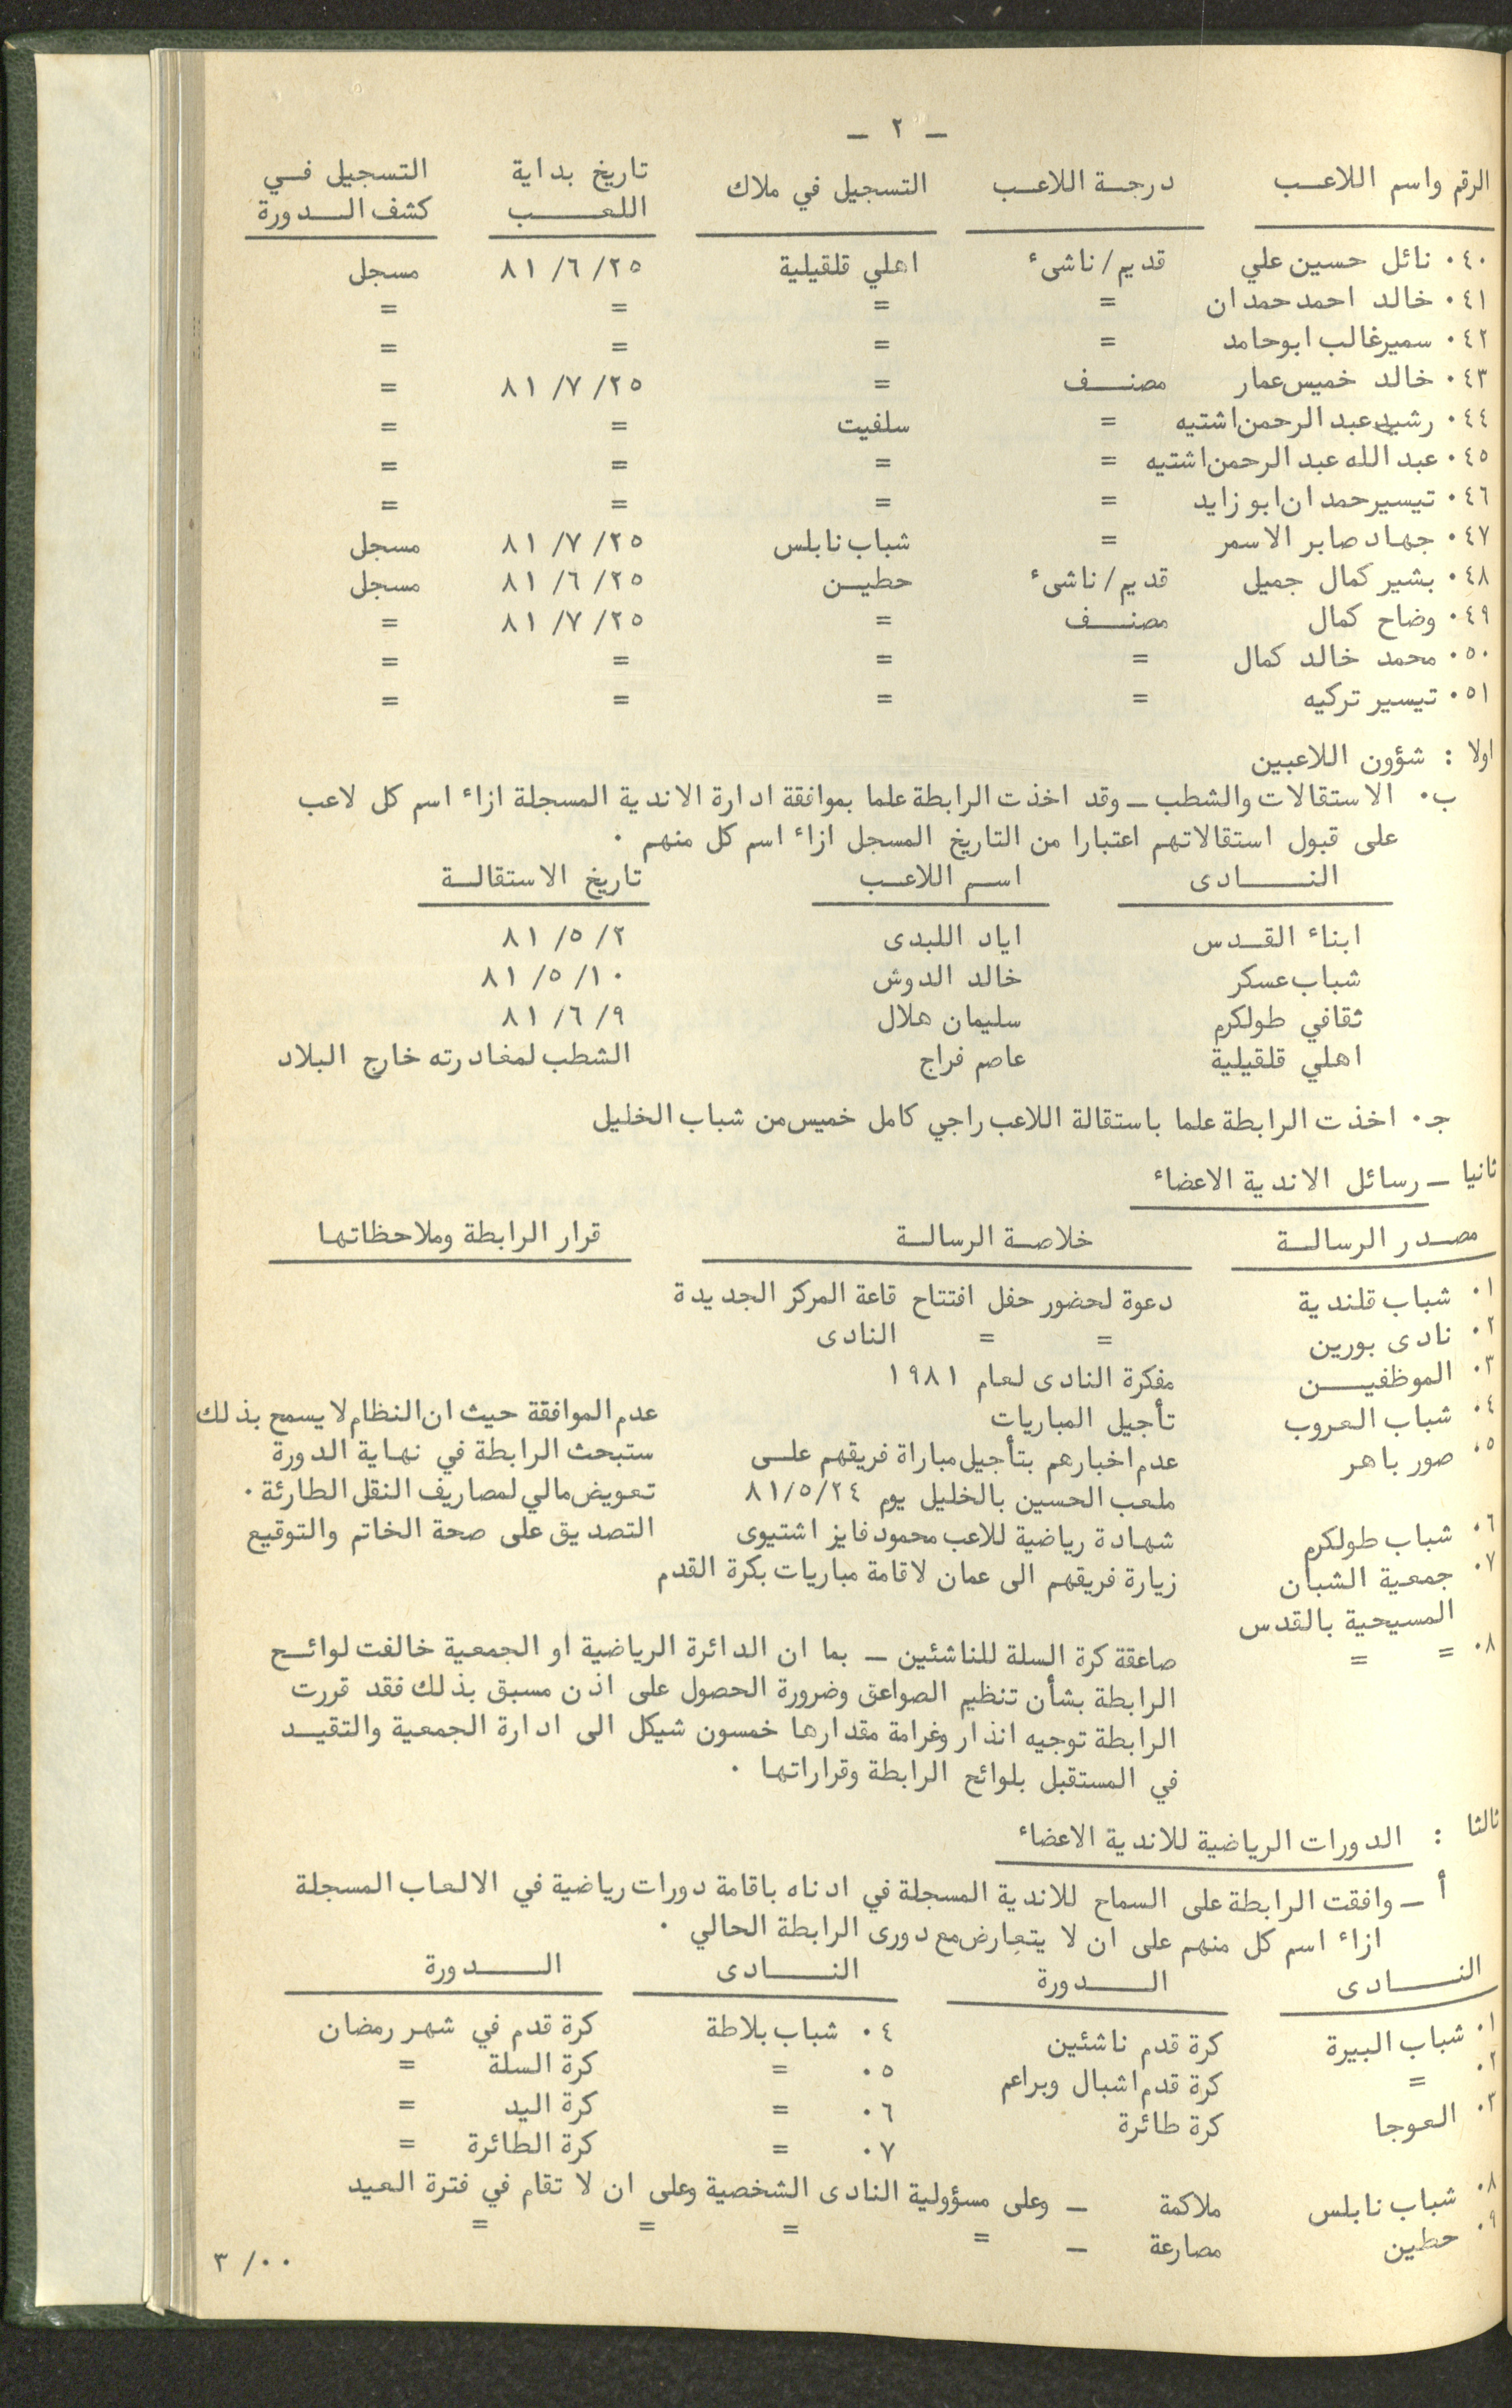 — ٢ —
الرقم واسم اللاعب درجة اللاعب التسجيل في ملاك تاريخ بداية اللعب التسجيل في كشف الدورة
٤٠٠ نائل حسين علي قديم/ناشىء اهلي قلقيلية ٨١/٦/٢٥ مسجل
٤١٠ خالد احمد حمدان = = = =
٤٢٠ سمير غالب ابوحامد = = = =
٤٣٠ خالد خميس عمار مصنف = ٨١/٧/٢٥ =
٤٤٠ رشيد عبد الرحمن اشتيه = سلفيت = =
٤٥٠ عبد الله عبد الرحمن اشتيه = = = =
٤٦٠ تيسير حمدان ابو زايد = = = =
٤٧٠ جهاد صابر الاسمر = شباب نابلس ٨١/٧/٢٥ مسجل
٤٨٠ بشير كمال جميل قديم/ناشىء حطين ٨١/٦/٢٥ مسجل
٤٩٠ وضاح كمال مصنف = ٨١/٧/٢٥ =
٥٠٠ محمد خالد كمال = = = =
٥١٠ تيسير تركيه = = = =
اولا : شؤون اللاعبين
ب٠ الاستقالات والشطب — وقد اخذت الرابطة علما بموافقة ادارة الاندية المسجلة ازاء اسم كل لاعب
على قبول استقالاتهم اعتبارا من التاريخ المسجل ازاء اسم كل منهم ٠
النادى اسم اللاعب تاريخ الاستقالة
ابناء القدس اياد اللبدى ٨١/٥/٢
شباب عسكر خالد الدوش ٨١/٥/١٠
ثقافي طولكرم سليمان هلال ٨١/٦/٩
اهلي قلقيلية عاصم فراج الشطب لمغادرته خارج البلاد
ج٠ اخذت الرابطة علما باستقالة اللاعب راجي كامل خميس من شباب الخليل
ثانيا — رسائل الاندية الاعضاء
مصدر الرسالة خلاصة الرسالة قرار الرابطة وملاحظاتها
١٠ شباب قلندية دعوة لحضور حفل افتتاح قاعة المركز الجديدة
٢٠ نادى بورين = = النادى
٣٠ الموظفين مفكرة النادى لعام ١٩٨١
٤٠ شباب العروب تأجيل المباريات عدم الموافقة حيث ان النظام لا يسمح بذلك
٥٠ صور باهر عدم اخبارهم بتأجيل مباراة فريقهم على ستبحث الرابطة في نهاية الدورة
ملعب الحسين بالخليل يوم ٨١/٥/٢٤ تعويض مالي لمصاريف النقل الطارئة٠
٦٠ شباب طولكرم شهادة رياضية للاعب محمود فايز اشتيوى التصديق على صحة الخاتم والتوقيع
٧٠ جمعية الشبان زيارة فريقهم الى عمان لاقامة مباريات بكرة القدم
المسيحية بالقدس
٨٠ = = صاعقة كرة السلة للناشئين — بما ان الدائرة الرياضية او الجمعية خالفت لوائح
الرابطة بشأن تنظيم الصواعق وضرورة الحصول على اذن مسبق بذلك فقد قررت
الرابطة توجيه انذار وغرامة مقدارها خمسون شيكل الى ادارة الجمعية والتقيد
في المستقبل بلوائح الرابطة وقراراتها ٠
ثالثا : الدورات الرياضية للاندية الاعضاء
أ — وافقت الرابطة على السماح للاندية المسجلة في ادناه باقامة دورات رياضية في الالعاب المسجلة
ازاء اسم كل منهم على ان لا يتعارض مع دورى الرابطة الحالي ٠
النادى الدورة النادى الدورة
١٠ شباب البيرة كرة قدم ناشئين ٤٠ شباب بلاطة كرة قدم في شهر رمضان
٢٠ = كرة قدم اشبال وبراعم ٥٠ = كرة السلة =
٣٠ العوجا كرة طائرة ٦٠ = كرة اليد =
٧٠ = كرة الطائرة =
٨٠ شباب نابلس ملاكمة — وعلى مسؤولية النادى الشخصية وعلى ان لا تقام في فترة العيد
٩٠ حطين مصارعة — = = = =
٣/٠٠